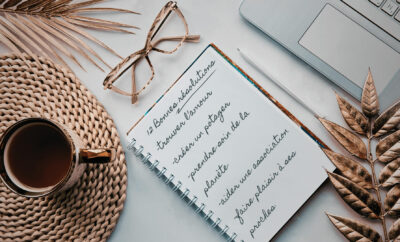 12 Bonnes résolutions
trouver l'amour
-créer un potager
-prendre soin de la
planète
-aider une association
faire plaisir à ses
proches